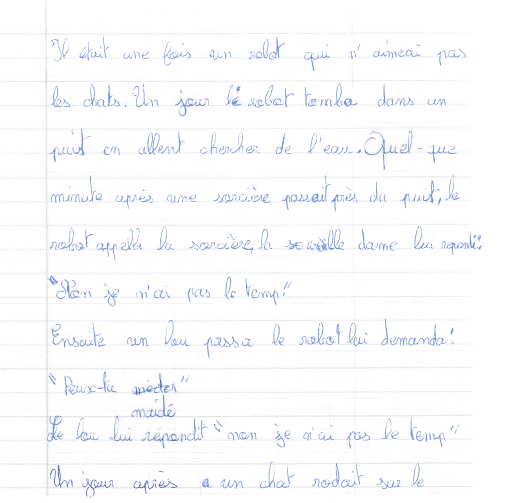 Il était une fois un robot qui n'aimeai pas
les chats. Un jour le robot tomba dans un
puit en allent chercher de l'eau. Quel-que
minute après une sorcière passait près du puit, le
robot appella la sorcière, la vieille dame lui repondit:
"Non je n'ai pas le temp"
Ensuite un lou passa le robot lui demanda:
"Peux-tu
maidé"
Le lou lui répondit "non je n'ai pas le temp"
Un jour après un chat rodait sur le